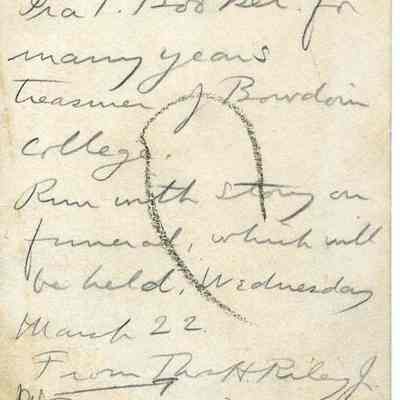 Ira P. Booker. for
many years
treasurer of Bowdoin
college.
Run with story on
funeral, which will
be held, Wednesday
March 22.
From Thos H. Riley Jr.